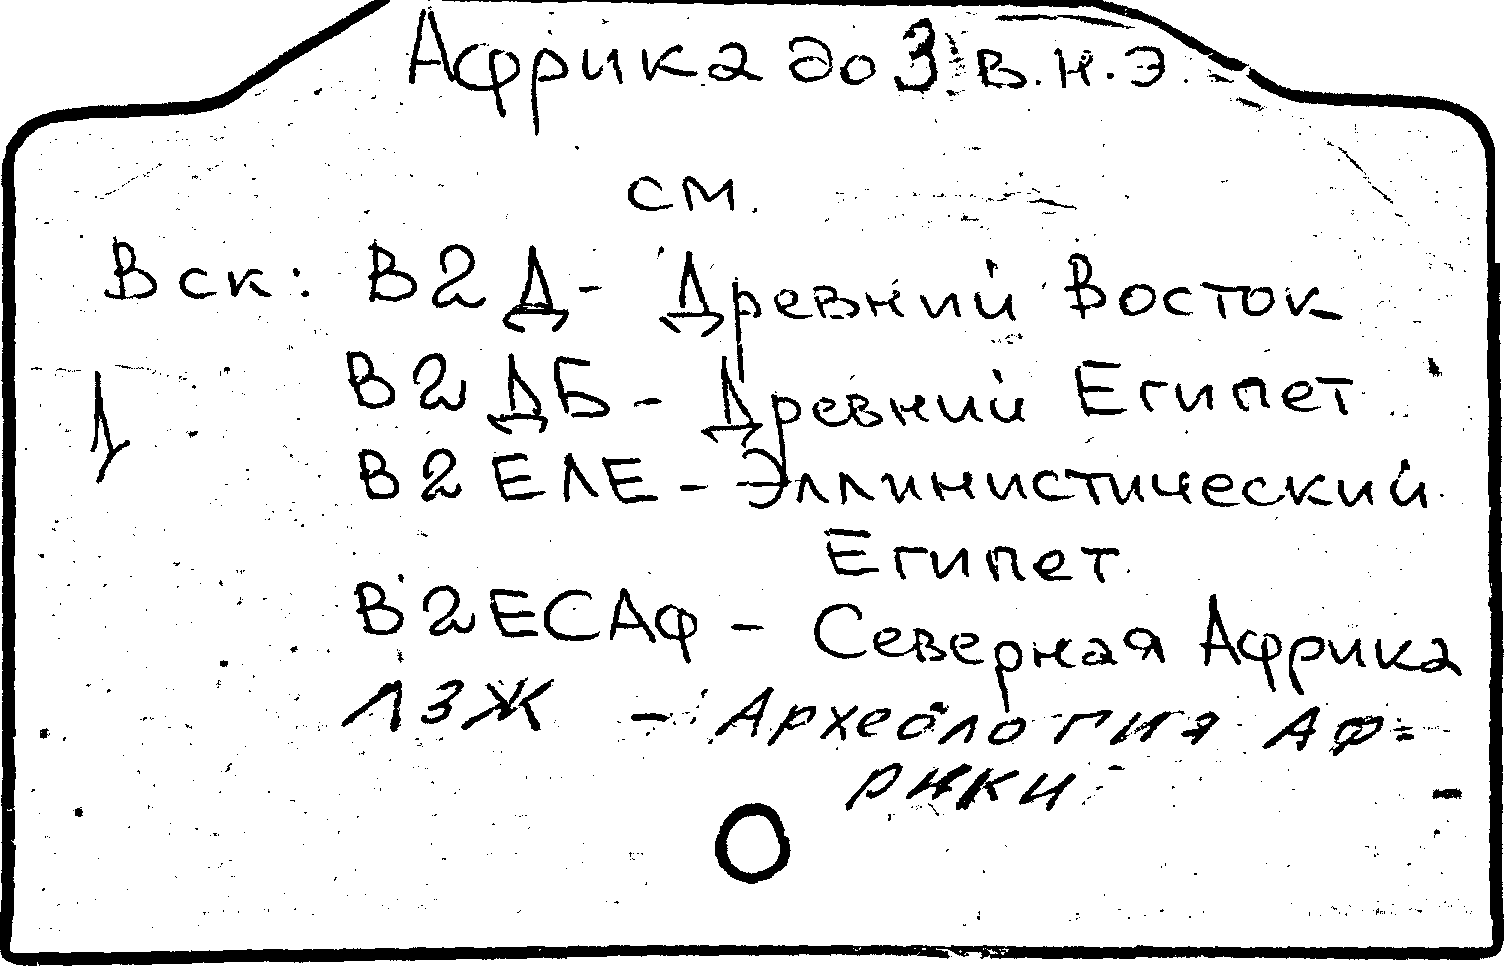 Африка до 3 в.н.э.
см.
Вск: В2Д - Древний Восток
В2ДБ - Древний Египет
В2ЕЛЕ - Эллинистический
Египет
В2ЕСАФ - Северная Африка
Л3Ж - Археология Аф-
рики